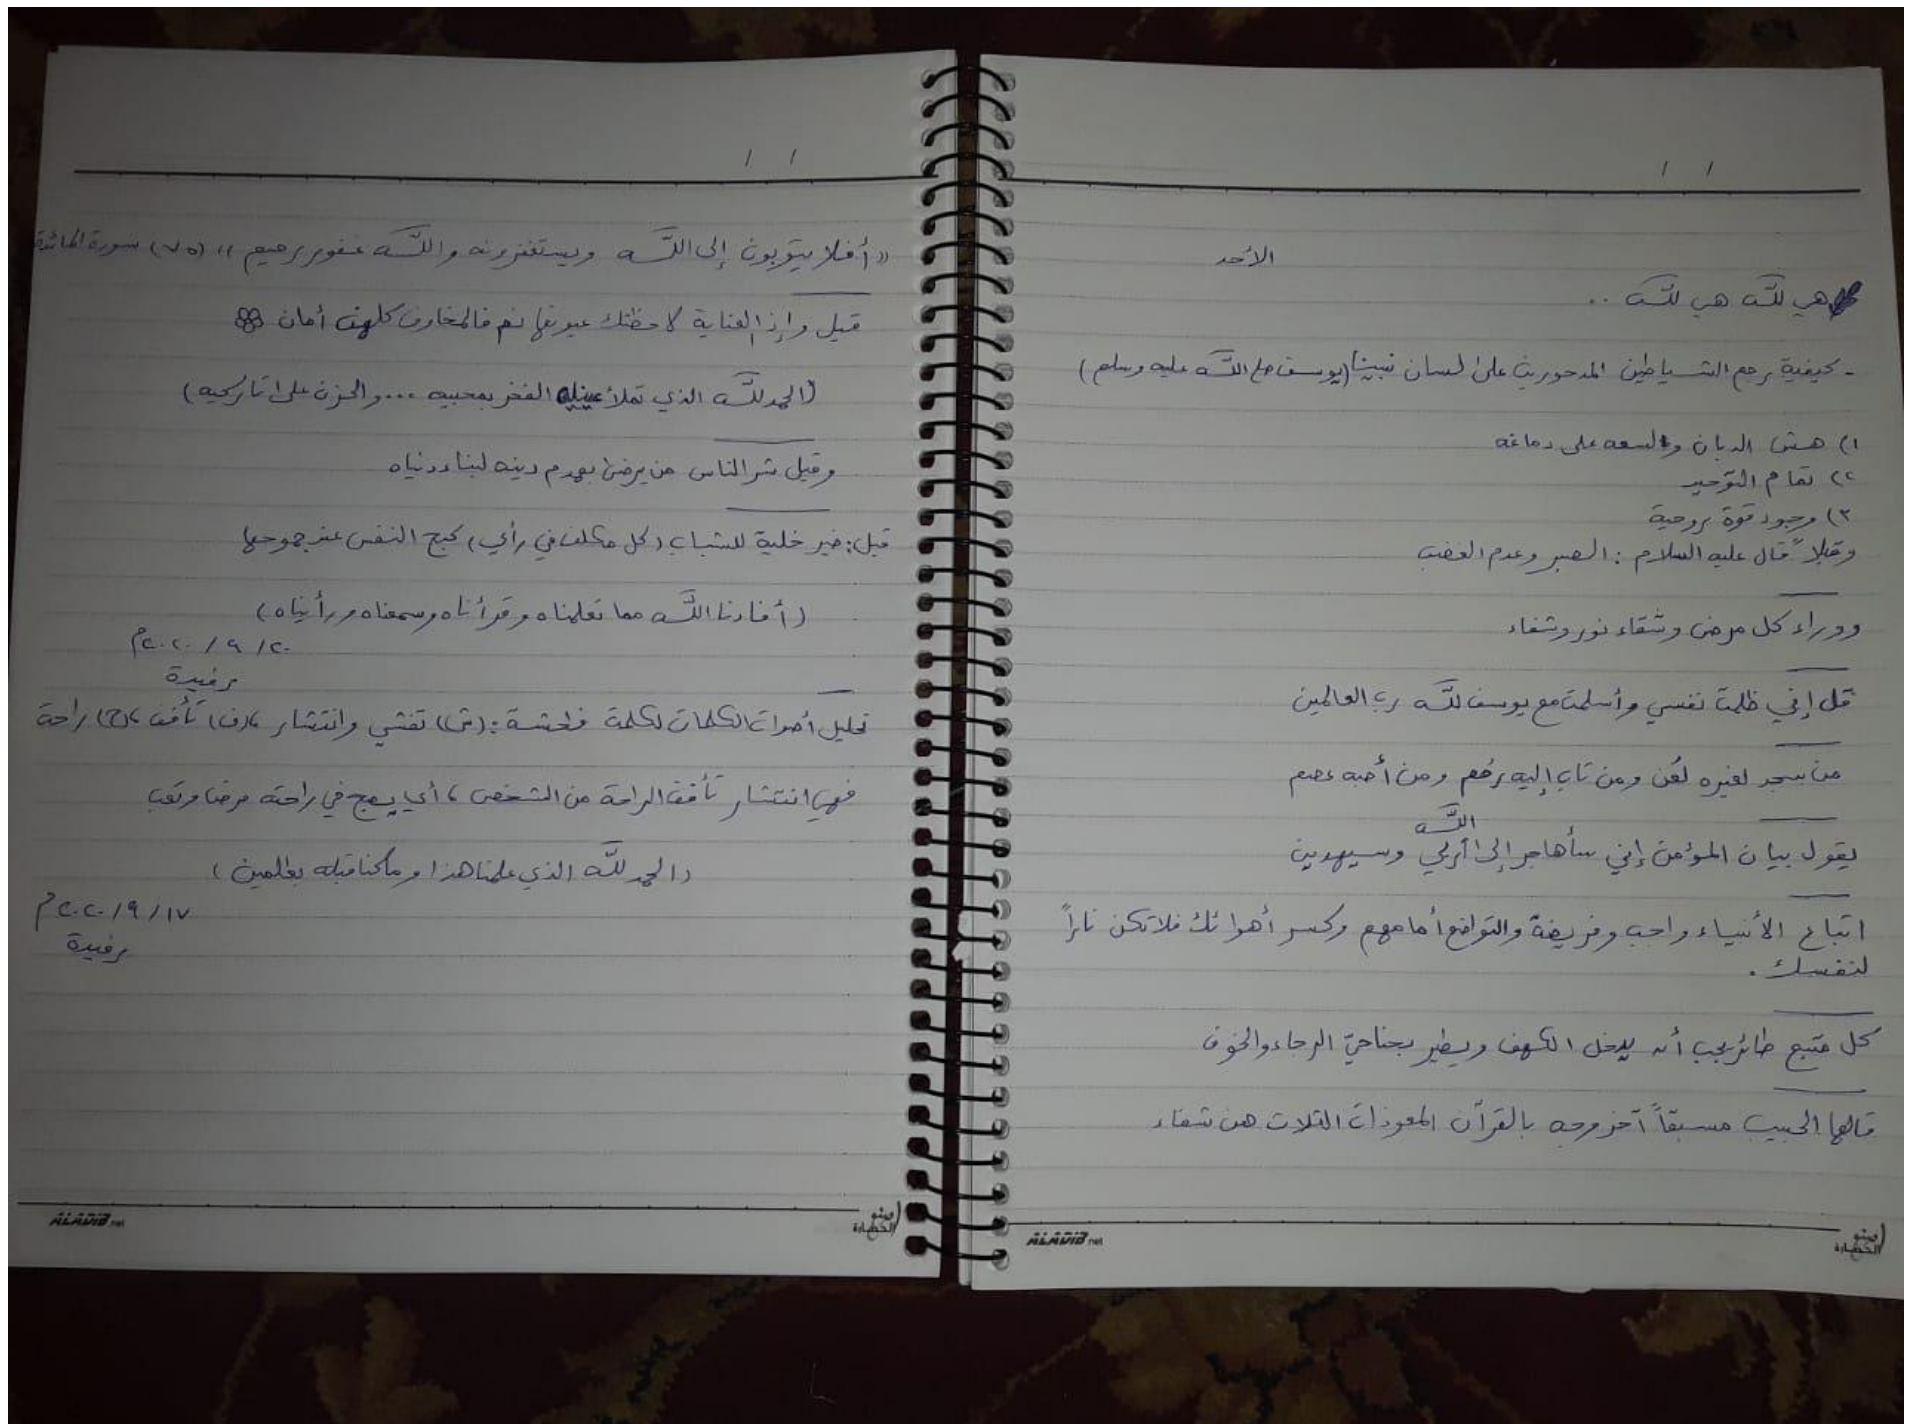 / /
الأحد
هي للّه هي للّه ..
- كيفية رجم الشياطين المدحورين على لسان نبينا (يوسف صلى اللّه عليه وسلم)
١) هش الدبان والسعه على دماغه
٢) تمام التوحيد
٣) وجود قوة روحية
وقبلاً قال عليه السلام : الصبر وعدم الغضب
ووراء كل مرض وشقاء نور وشفاء
قل إني ظلمت نفسي وأسلمت مع يوسف للّه رب العالمين
من سجد لغيره لُعن ومن تاب إليه رُحم ومن أحبه عصم
اللّه
يقول بيان المؤمن إني سأهاجر إلى ربي وسيهدين
اتباع الأنبياء واجب وفريضة والتواضع أمامهم وكسر أهوائك فلا تكن ناراً
لنفسك .
كل متبع طائر يجب أن يدخل الكهف ويطير بجناحيّ الرجاء والخوف
قالها الحبيب مسبقاً آخر وجه بالقرآن المعوذات الثلاث هن شفاء
ALADIB.net
الحضارة
/ /
« أفلا يتوبون إلى اللّه ويستغفرونه واللّه غفور رحيم » (٧٥) سورة المائدة
قيل وإذ العناية لاحظتك عيونها نم فالمخاوف كلهن أمان
(الحمد للّه الذي تملأ عينيه الفخر بمحبيه ... والحزن على تاركيه)
وقيل شر الناس من يرضى بهدم دينه لبناء دنياه
قيل : خير خلية للشباب (كل مكلف في رأي) كبح النفس عند جموحها
(أفادنا اللّه مما تعلمناه وقرأناه وسمعناه ورأيناه)
٢٠ / ٩ / ٢٠٢٠م
رفيدة
تحليل أصوات الكلمات لكلمة فاحشة : (ش) تفشي وانتشار ، (ف) تأفف ، (ح) راحة
فهي انتشار تأفف الراحة من الشخص ، أي يصبح في راحته مرضا وتعب
(الحمد للّه الذي علمنا هذا وما كنا قبله بعالمين)
١٧ / ٩ / ٢٠٢٠م
رفيدة
ALADIB.net
الحضارة